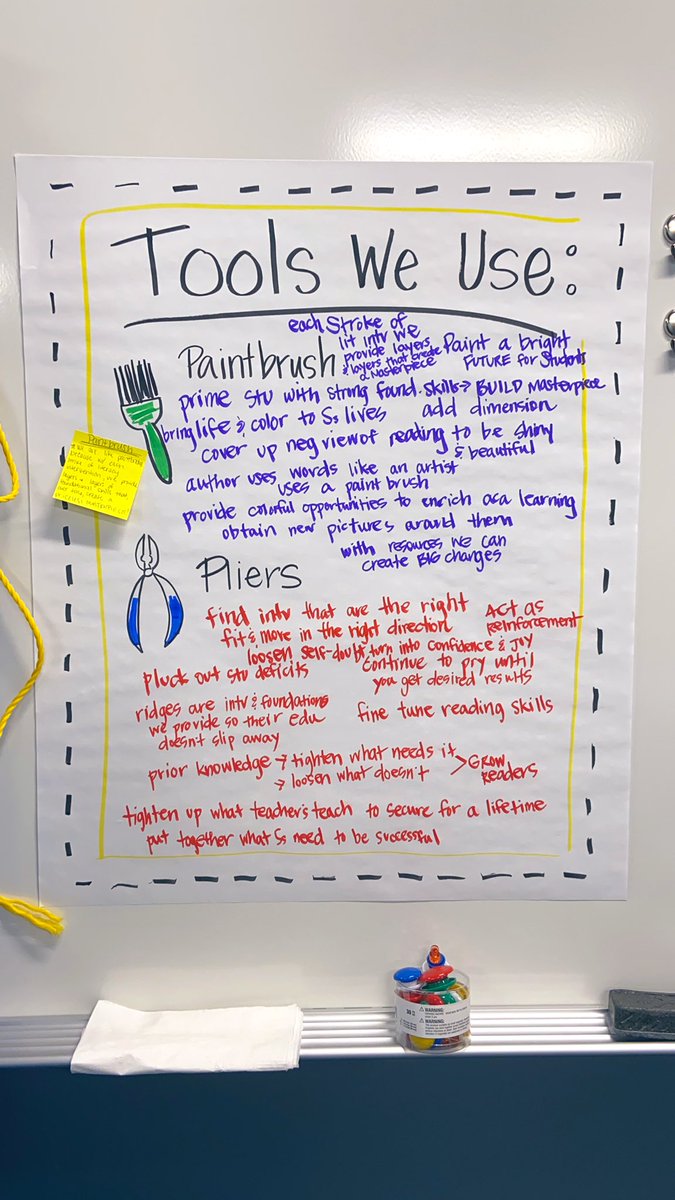 Tools We Use:
each Stroke of
lit intv we
provide layers
& layers that create
a Masterpiece
Paint a bright
FUTURE for Students
Paintbrush
prime stu with strong found. skills → BUILD Masterpiece
bring life & color to Ss lives
add dimension
cover up neg view of reading to be shiny
& beautiful
author uses words like an artist
uses a paint brush
provide colorful opportunities to enrich aca learning
obtain new pictures around them
with resources we can
create BIG changes
Paintbrush
Pliers
find intv that are the right
fit & move in the right direction
Act as
Reinforcement
loosen self-doubt, turn into confidence & Joy
pluck out stu deficits
continue to pry until
you get desired results
ridges are intv & foundations
we provide so their edu
doesn't slip away
fine tune reading skills
prior knowledge → tighten what needs it
→ loosen what doesn't
> GROW
Readers
tighten up what teacher's teach to secure for a lifetime
put together what Ss need to be successful
WARNING:
WARNING: